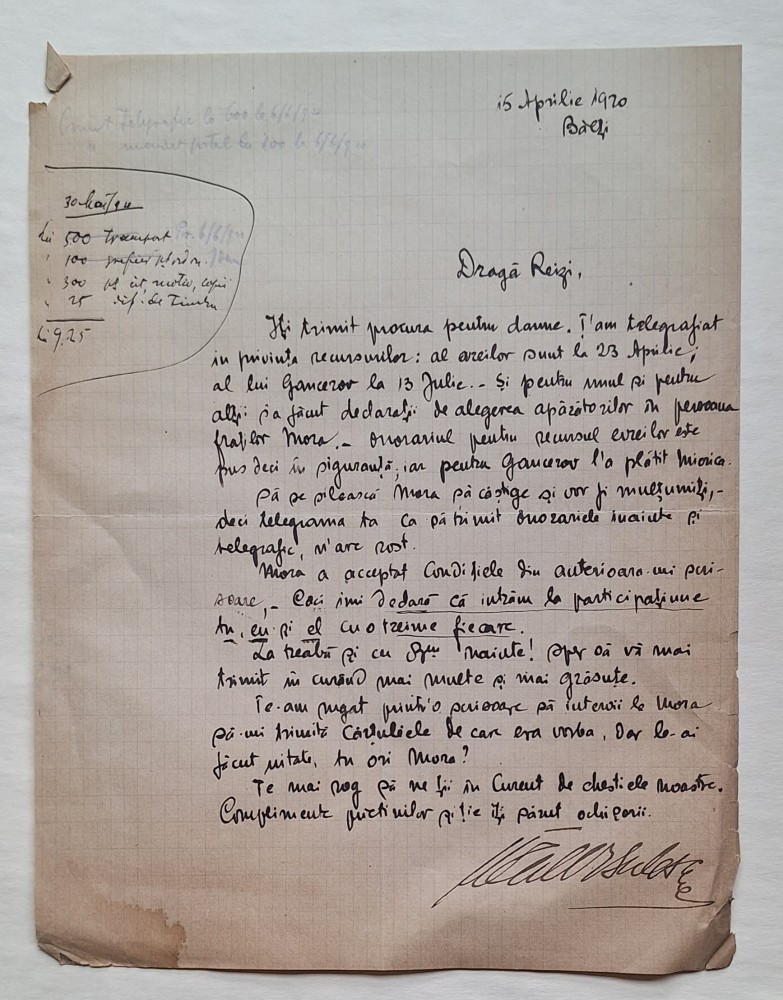 telegrafic la 600 la 6/6/920
" mandat postal la 200 la 6/6/920
15 Aprilie 1920
Bălți
30 Mai/920
Lei 500 transport
" 100
" 300 pt. cit, motiv, copii
" 25 dif. de timbru
L 925
Dragă Reizi,
Iți trimit procura pentru damne. Ț'am telegrafiat
in privința recursurilor: al evreilor sunt la 23 Aprilie;
al lui Gancerov la 13 Julie. – Și pentru unul și pentru
alții s'a făcut declarații de alegerea apărătorilor în persoana
fraților Mora. – Onorariul pentru recursul evreilor este
pus deci în siguranță, iar pentru Gancerov l'a plătit Miorica.
Să se silească Mora să câștige și vor fi mulțumiți, –
deci telegrama ta ca să trimit onorariele inainte și
telegrafic, n'are rost.
Mora a acceptat Condițiele din anterioara-mi scri-
soare, – Caci imi declară că intrăm la participațiune
tu, eu și el cu o treime fiecare.
La treabă și cu naiute! Sper să vă mai
trimit in curând mai multe și mai grăsuțe.
Te-am rugat printr'o scrisoare să intervii la Mora
să-mi trimită Cărțuliele de care era vorba, Dar le-ai
făcut uitate, tu ori Mora?
Te mai rog să ne ții în Curent de chestiele noastre.
Complimente prietinilor și ție îți sărut ochișorii.